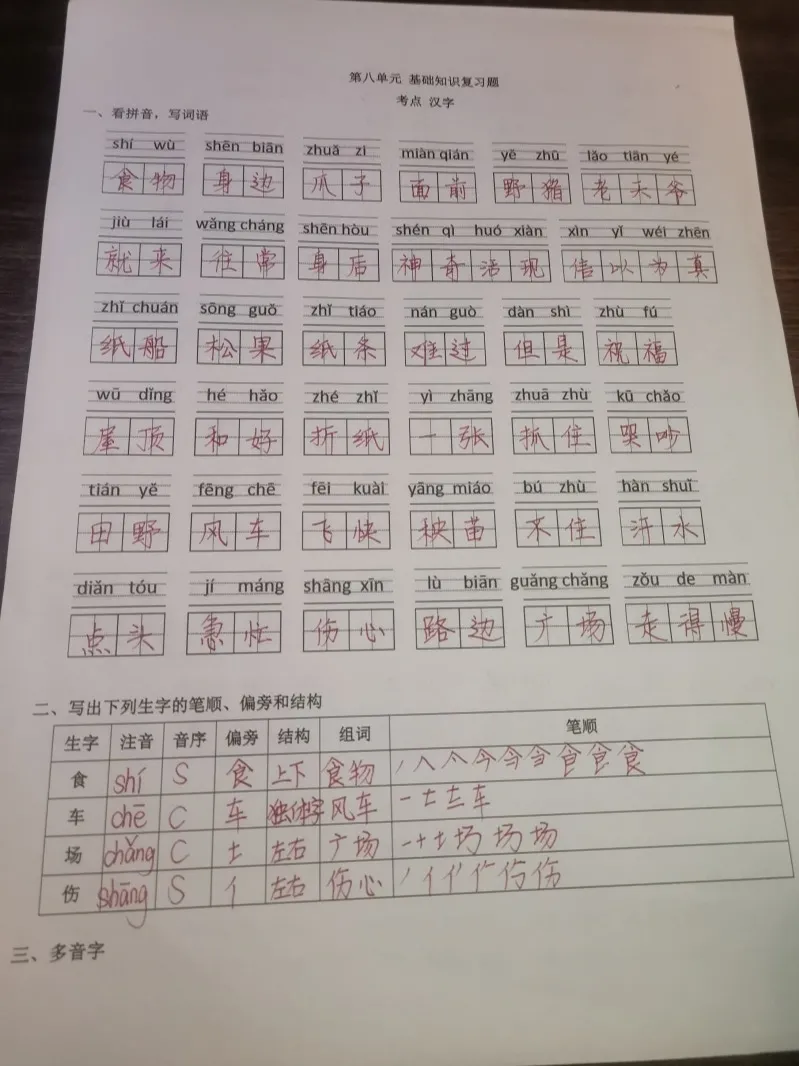 第八单元 基础知识复习题
考点 汉字
一、看拼音，写词语
shí wù shēn biān zhuǎ zi miàn qián yě zhū lǎo tiān yé
食物 身边 爪子 面前 野猪 老天爷
jiù lái wǎng cháng shēn hòu shén qì huó xiàn xìn yǐ wéi zhēn
就来 往常 身后 神奇活现 信以为真
zhǐ chuán sōng guǒ zhǐ tiáo nán guò dàn shì zhù fú
纸船 松果 纸条 难过 但是 祝福
wū dǐng hé hǎo zhé zhǐ yì zhāng zhuā zhù kū chǎo
屋顶 和好 折纸 一张 抓住 哭吵
tián yě fēng chē fēi kuài yāng miáo bú zhù hàn shuǐ
田野 风车 飞快 秧苗 不住 汗水
diǎn tóu jí máng shāng xīn lù biān guǎng chǎng zǒu de màn
点头 急忙 伤心 路边 广场 走得慢
二、写出下列生字的笔顺、偏旁和结构
生字 注音 音序 偏旁 结构 组词 笔顺
食 shí S 食 上下 食物
车 chē C 车 独体字 风车
场 chǎng C 土 左右 广场
伤 shāng S 亻 左右 伤心
三、多音字